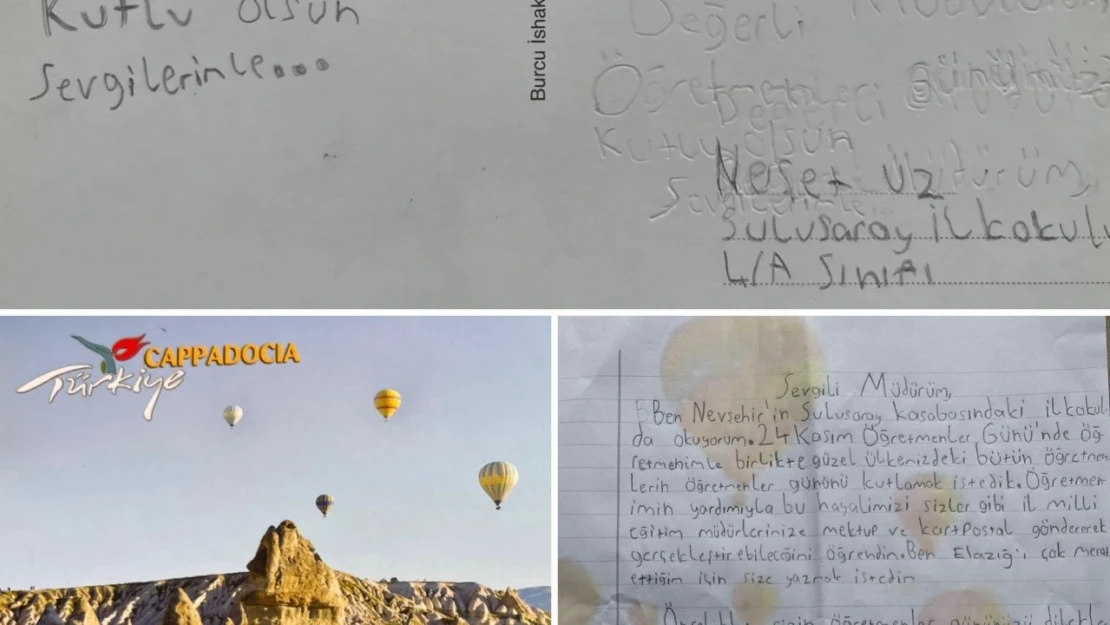 Kutlu olsun
Sevgilerimle...
Burcu İshak
Değerli
Öğretmenler gününüz
Kutlu olsun
Neşet üz
Sulusaray İlkokulu
4/A Sınıfı
CAPPADOCIA
Türkiye
Sevgili Müdürüm,
Ben Nevşehir'in Sulusaray kasabasındaki ilkokul
da okuyorum. 24 Kasım Öğretmenler Günü'nde öğ
retmenimle birlikte güzel ülkemizdeki bütün öğretmen
lerin öğretmenler gününü kutlamak istedik. Öğretmen
imin yardımıyla bu hayalimizi sizler gibi il milli
eğitim müdürlerimize mektup ve kartpostal göndererek
gerçekleştirebileceğimi öğrendim. Ben Elazığ'ı çok merak
ettiğim için size yazmak istedim
öğretmenler gününüzü